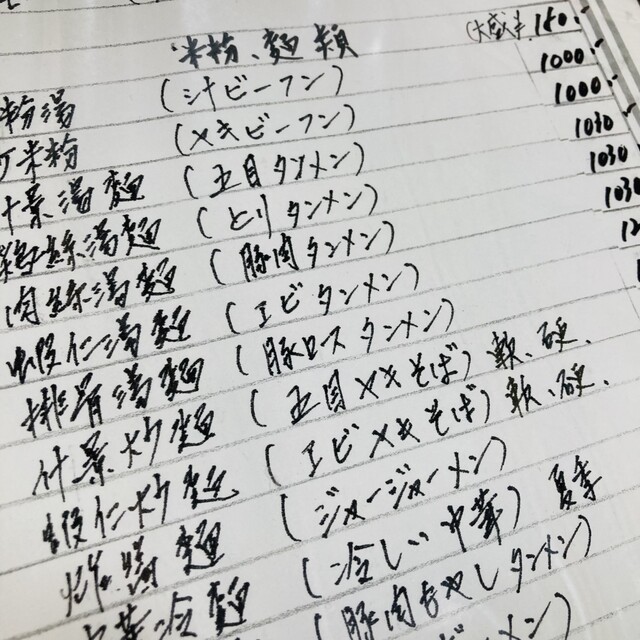 米粉、麺類 (大盛は150.-
粉湯 (汁ビーフン) 1000.-
米粉 (ヤキビーフン) 1000.-
什景湯麺 (五目タンメン) 1030
鶏絲湯麺 (とりタンメン) 1030
肉絲湯麺 (豚肉タンメン) 1030
蝦仁湯麺 (エビタンメン)
排骨湯麺 (豚ロースタンメン)
什景炒麺 (五目ヤキそば) 軟、硬、
蝦仁炒麺 (エビヤキそば) 軟、硬、
炸醤麺 (ジャージャーメン)
中華冷麺 (冷しい中華) 夏季
(豚肉もやしタンメン)